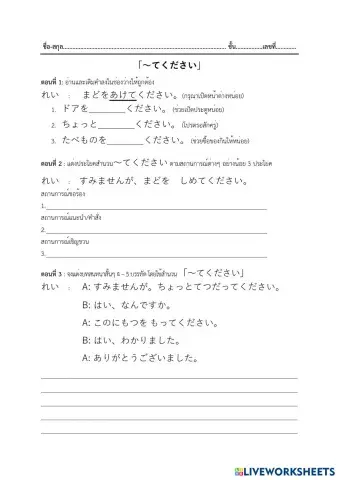 ชื่อ-สกุล.................................................................................... ชั้น...............เลขที่............
「～てください」
ตอนที่ 1: อ่านและเติมคำลงในช่องว่างให้ถูกต้อง
れい : まどをあけてください。(กรุณาเปิดหน้าต่างหน่อย)
1. ドアを________ください。(ช่วยเปิดประตูหน่อย)
2. ちょっと________ください。(โปรดรอสักครู่)
3. たべものを________ください。(ช่วยซื้อของกินให้หน่อย)
ตอนที่ 2 : แต่งประโยคสำนวน～てください ตามสถานการณ์ต่างๆ อย่างน้อย 3 ประโยค
れい : すみませんが、まどを しめてください。
สถานการณ์ขอร้อง
1.________________________________________
สถานการณ์แนะนำ/คำสั่ง
2.________________________________________
สถานการณ์เชิญชวน
3.________________________________________
ตอนที่ 3 : จงแต่งบทสนทนาสั้นๆ 4 – 5 บรรทัด โดยใช้สำนวน 「～てください」
れい : A: すみませんが。ちょっとてつだってください。
B: はい、なんですか。
A: このにもつを もってください。
B: はい、わかりました。
A: ありがとうございました。
LIVEWORKSHEETS